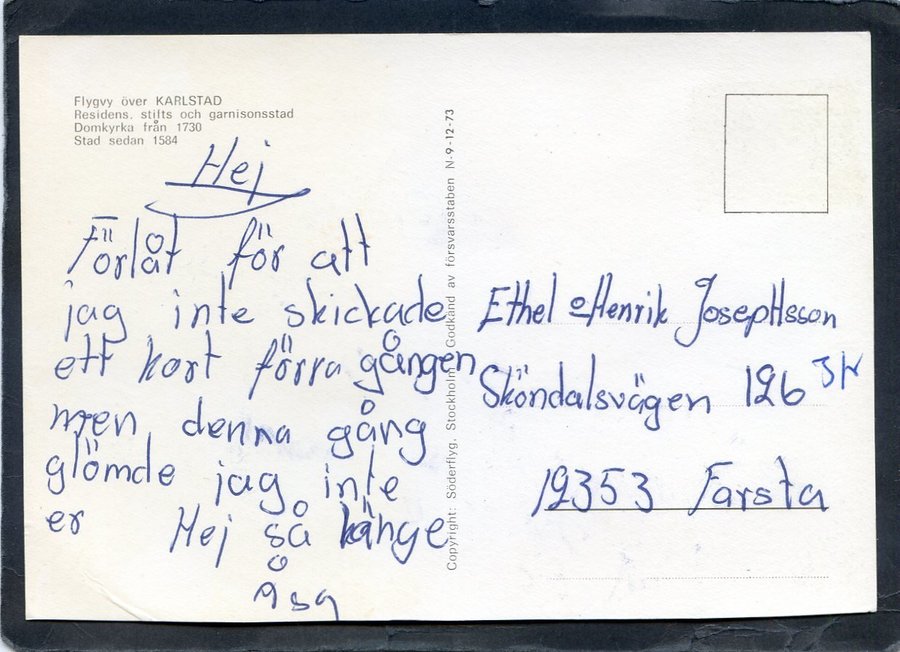 Flygvy över KARLSTAD
Residens. stifts och garnisonsstad
Domkyrka från 1730
Stad sedan 1584
Hej
Förlåt för att
jag inte skickade
ett kort förra gången
men denna gång
glömde jag inte
er Hej så länge
Åsa
Copyright: Söderflyg, Stockholm Godkänd av försvarsstaben N-9-12-73
Ethel o Henrik Josephsson
Sköndalsvägen 126
12353 Farsta